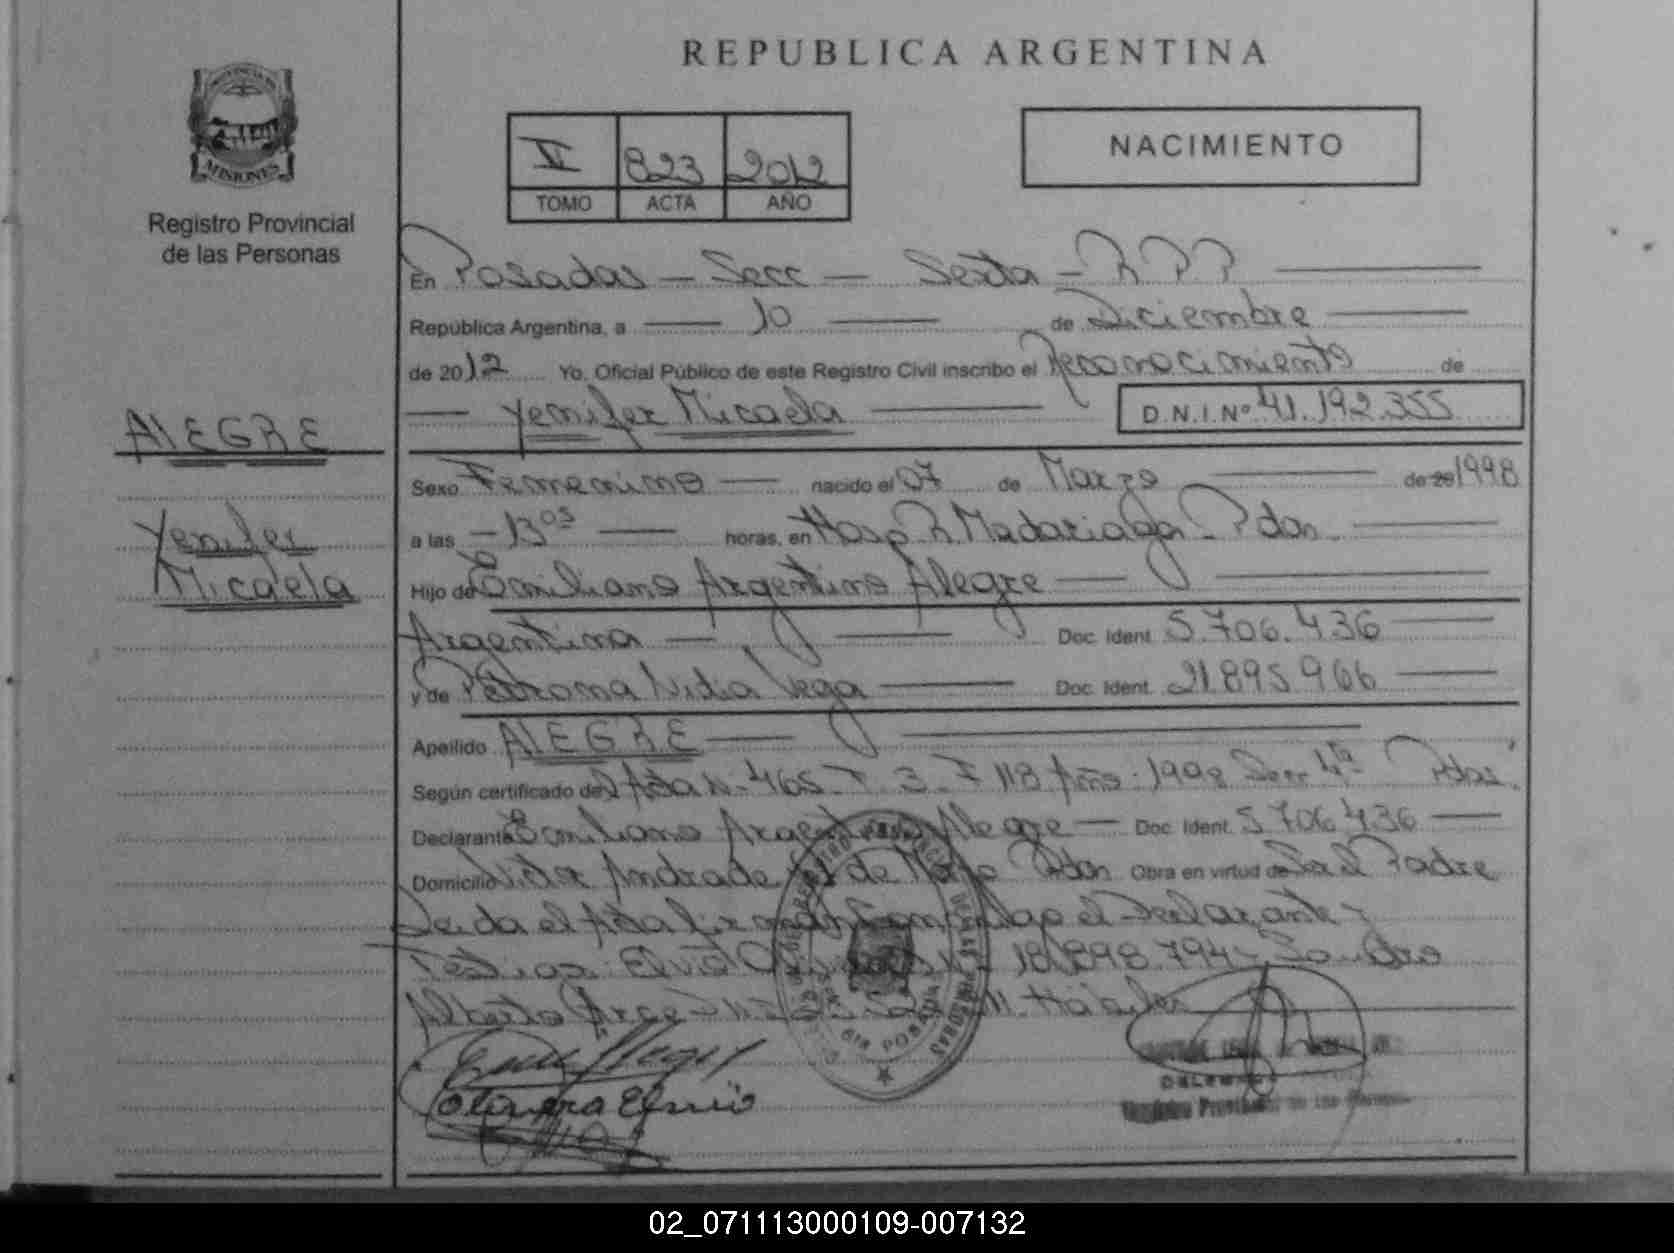 REPUBLICA ARGENTINA
PROVINCIA DE
MISIONES
Registro Provincial
de las Personas
V 823 2012
TOMO ACTA AÑO
NACIMIENTO
En Posadas - Secc - Sexta - R P P
República Argentina, a 10 de Diciembre
de 2012 Yo, Oficial Público de este Registro Civil inscribo el Reconocimiento de
Yenifer Micaela D.N.I. Nº 41.192.355
ALEGRE
Yenifer
Micaela
Sexo Femenino nacido el 07 de Marzo de 20 1998
a las - 13 05 horas, en Hosp R. Madariaga - Pdas.
Hijo de Emiliano Argentino Alegre
Argentina Doc. Ident. 5.706.436
y de Petrona Nidia Vega Doc. Ident. 21.895.966
Apellido ALEGRE
Según certificado de Acta N- 465 - T. 3 - F 118 Año - 1998 Secc 4ª - Pdas.
Declarante Emiliano Argentino Alegre Doc. Ident. 5.706.436
Domicilio Andrade de Mayo Pdas Obra en virtud de Ser el Padre
Leida el Acta firman el Declarante y
Testigos: 18.898.794 - Sandro
Alberto Arce
6ta POSADAS
02_071113000109-007132